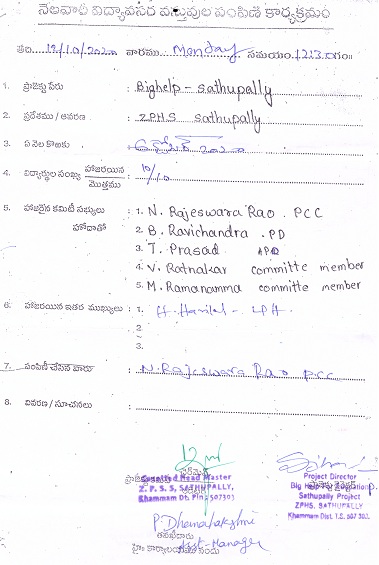 నెలవారీ విద్యావసర వస్తువుల పంపిణీ కార్యక్రమం
తేది. 12/10/2020 వారము Monday సమయం. 12.30గం॥
1. ప్రాజెక్టు పేరు : Bighelp - Sathupally
2. ప్రదేశము / ఆవరణ : ZPHS Sathupally
3. ఏ నెల కొఱకు : అక్టోబర్ 2020
4. విద్యార్థుల సంఖ్య హాజరయిన / మొత్తము : 10/10
5. హాజరైన కమిటీ సభ్యులు హోదాతో : 1. N. Rajeswara Rao . PCC
2. B. Ravichandra . PD
3. T. Prasad APD
4. V. Ratnakar committe member
5. M. Ramanamma committe member
6. హాజరయిన ఇతర ముఖ్యులు : 1.
2.
3.
7. పంపిణీ చేసిన వారు : N. Rajeswara Rao PCC
8. వివరణ / సూచనలు :
Gazetted Head Master
Z. P. S. S, SATHUPALLY,
Khammam Dt. Pin: 507303
Project Director
Sathupally Project
ZPHS, SATHUPALLY
Khammam Dist. T.S. 507 303.
P. Dhanalakshmi
Asst-Manager